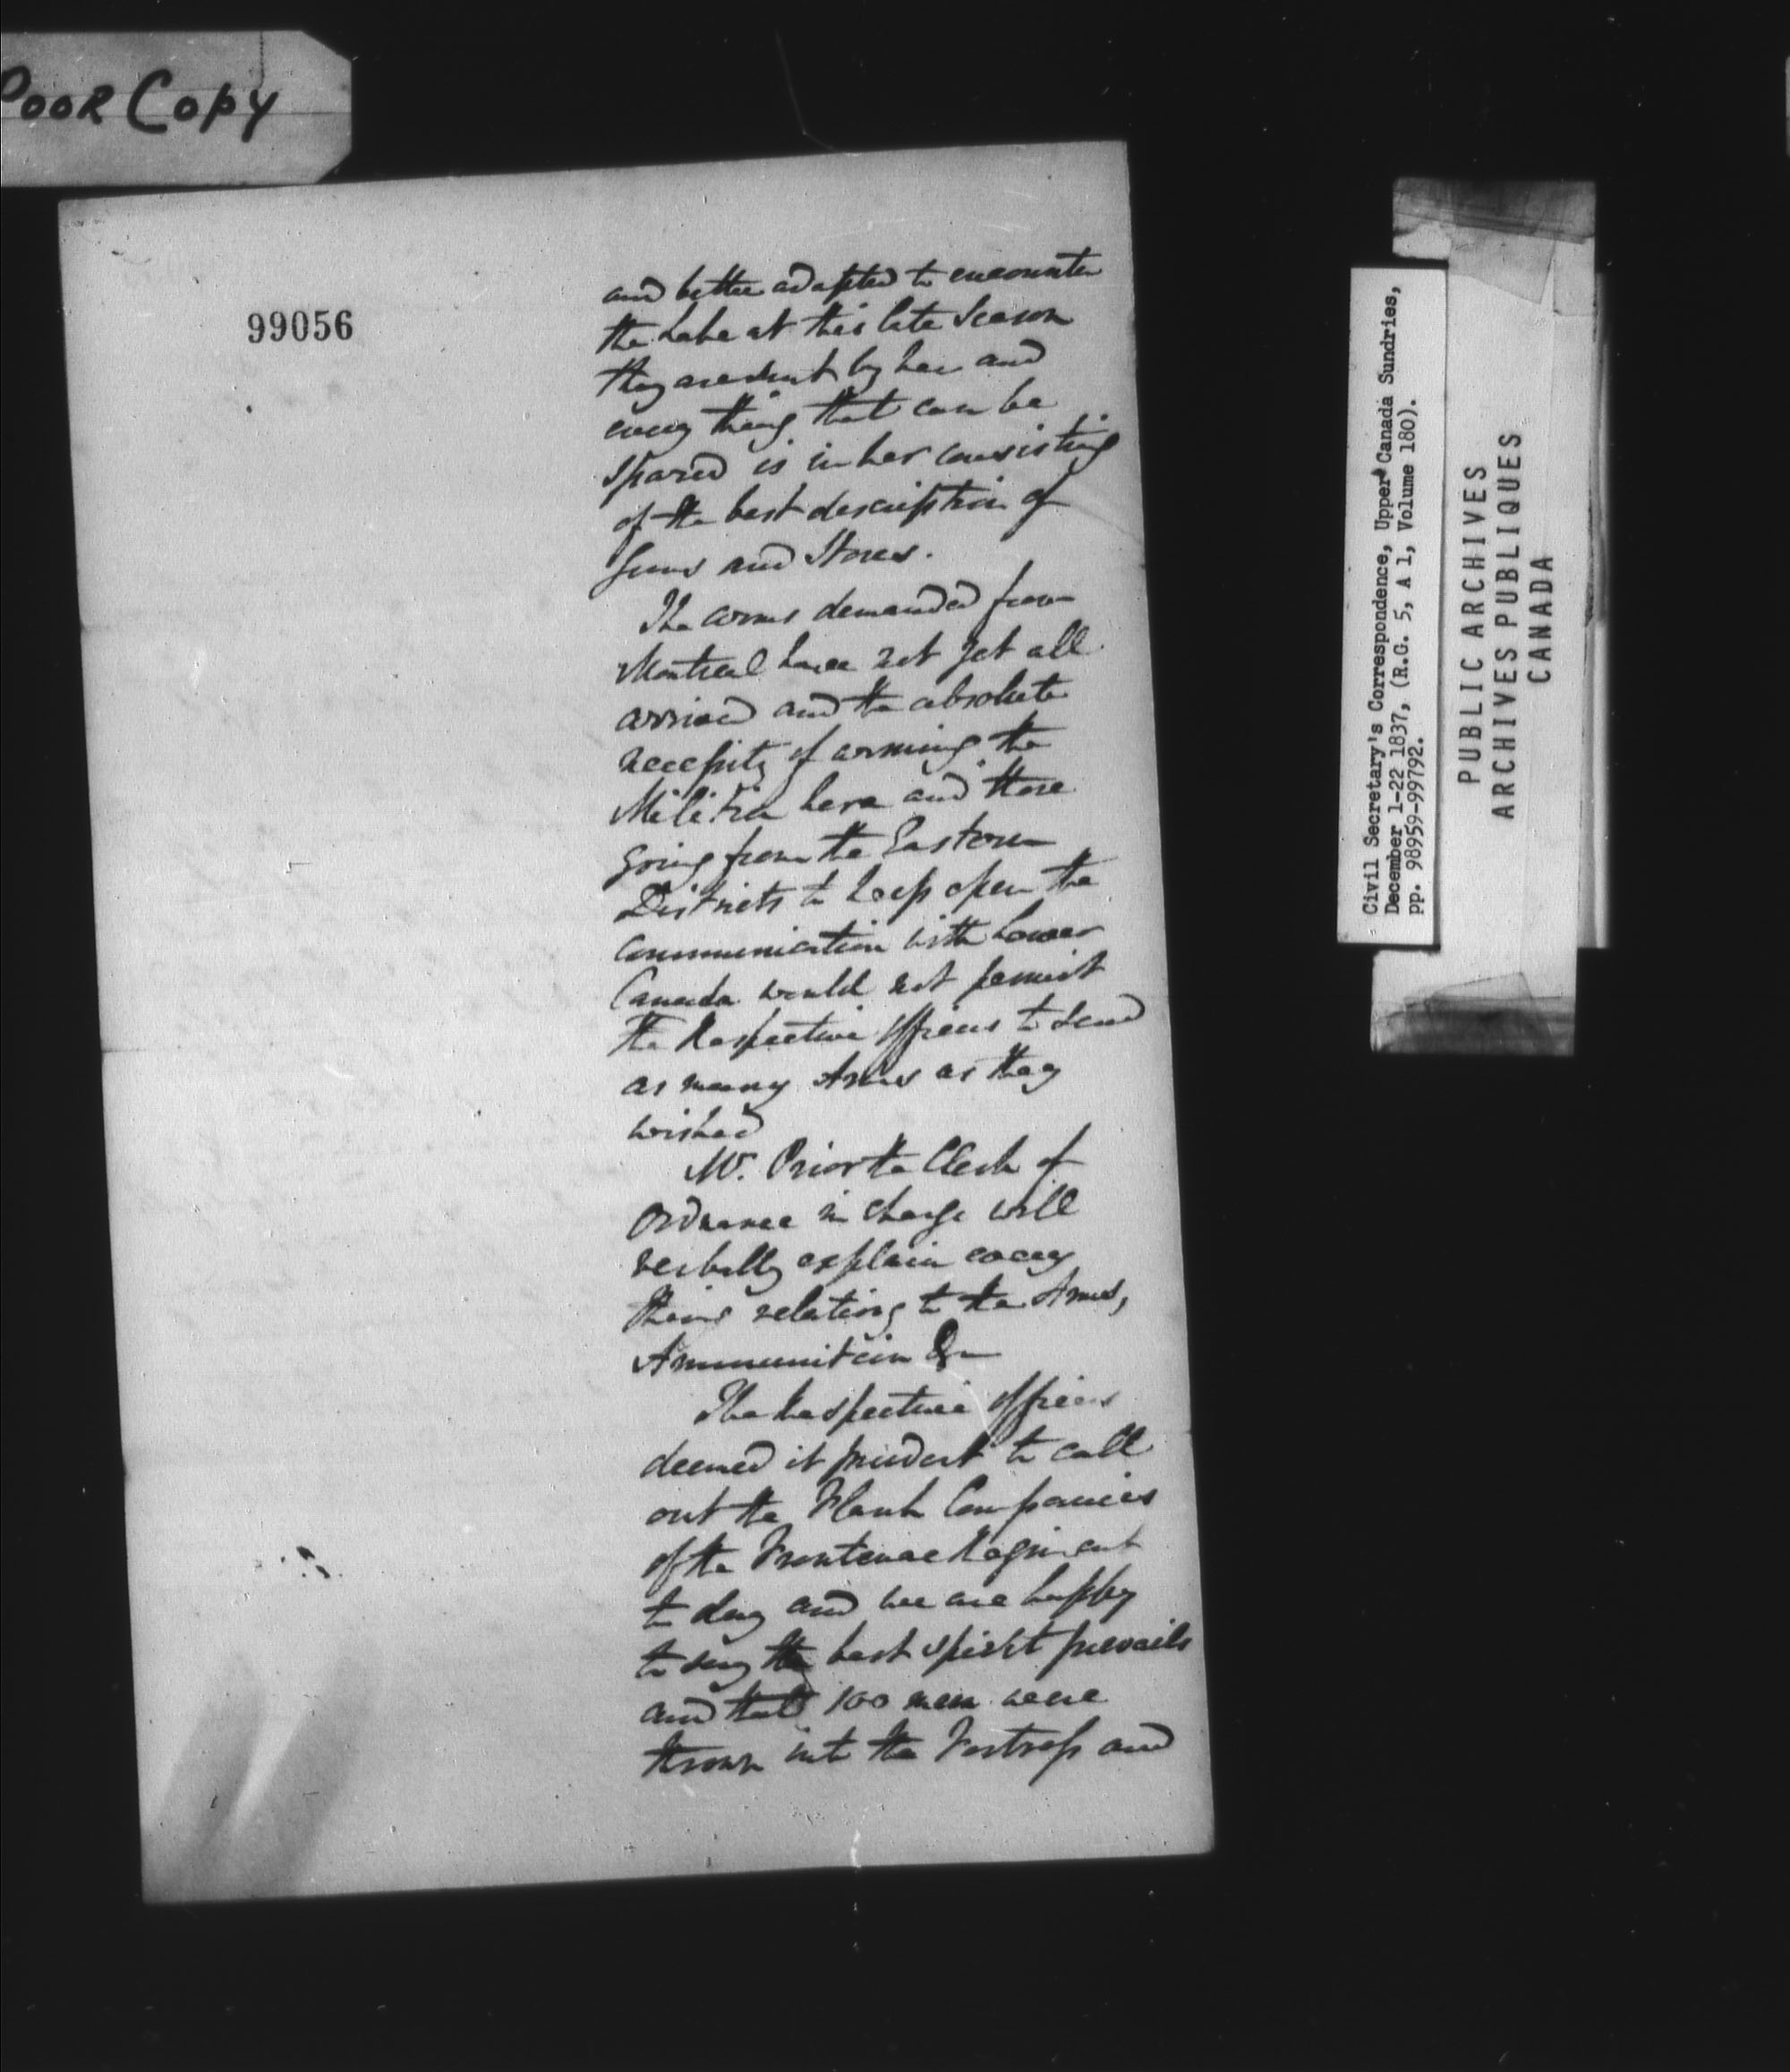 POOR COPY
99056
and better adapted to encounter
the Lake at this late Season
they are sent by her and
every thing that can be
spared is in her consisting
of the best description of
Guns and Stores.
The arms demanded from
Montreal have not yet all
arrived and the absolute
necessity of arming the
Militia here and those
going from the Eastern
Districts to keep open the
communication with Lower
Canada would not permit
the Respective Officers to send
as many Arms as they
wished
Mr. Prior the Clerk of
Ordnance in charge will
verbally explain every
thing relating to the Arms,
Ammunition &c
The Respective Officers
deemed it prudent to call
out the Flank Companies
of the Frontenac Regiment
to day and we are happy
to say the best spirit prevails
and that 100 men were
thrown into the Fortress and
Civil Secretary's Correspondence, Upper Canada Sundries,
December 1-22 1837, (R.G. 5, A 1, Volume 180).
pp. 98959-99792.
PUBLIC ARCHIVES
ARCHIVES PUBLIQUES
CANADA